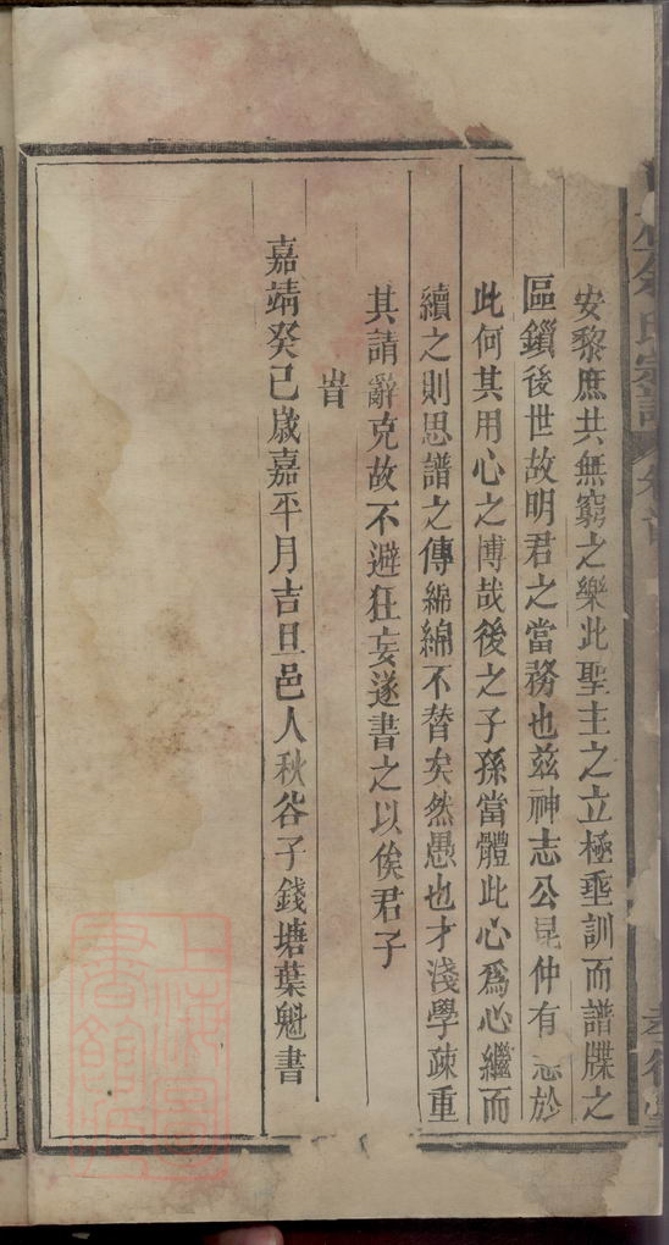 氏宗譜
安黎庶共無窮之樂此聖主之立極垂訓而譜牒之
區鎖後世故明君之當務也茲神志公昆仲有志於
此何其用心之博哉後之子孫當體此心爲心繼而
續之則思譜之傳綿綿不替矣然愚也才淺學疎重
其請辭克故不避狂妄遂書之以俟君子
旹
嘉靖癸巳歲嘉平月吉旦邑人秋谷子錢塘葉魁書
上海圖書館藏